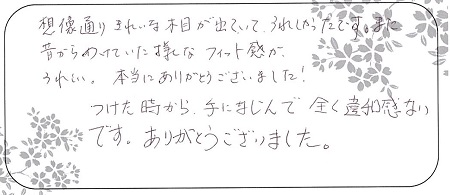 想像通りきれいな木目が出ていて、うれしかったです。また
昔からあっていた様なフィット感が、
うれしい。本当にありがとうございました!
つけた時から、手になじんで 全く違和感ない
です。ありがとうございました。